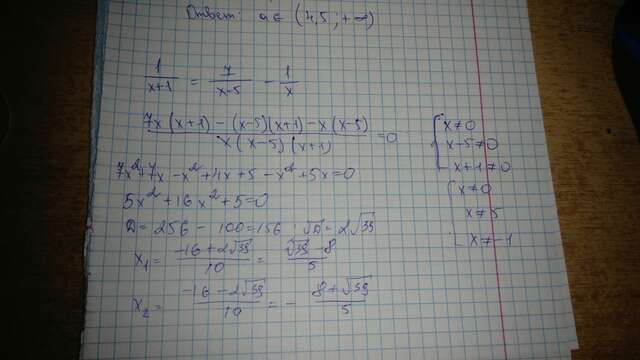 Ответ: a ∈ (4,5 ; +∞)
1/(x+1) = 7/(x-5) - 1/x
(7x(x+1) - (x-5)(x+1) - x(x-5))/(x(x-5)(x+1)) = 0
{ x≠0
x-5≠0
x+1≠0
7x²+7x - x² + 4x + 5 - x² + 5x = 0
{ x≠0
5x² + 16x² + 5 = 0
x≠5
D = 256 - 100 = 156 ; √D = 2√39
x≠-1
x₁ = (-16+2√39)/10 = (√39-8)/5
x₂ = (-16-2√39)/10 = - (8+√39)/5